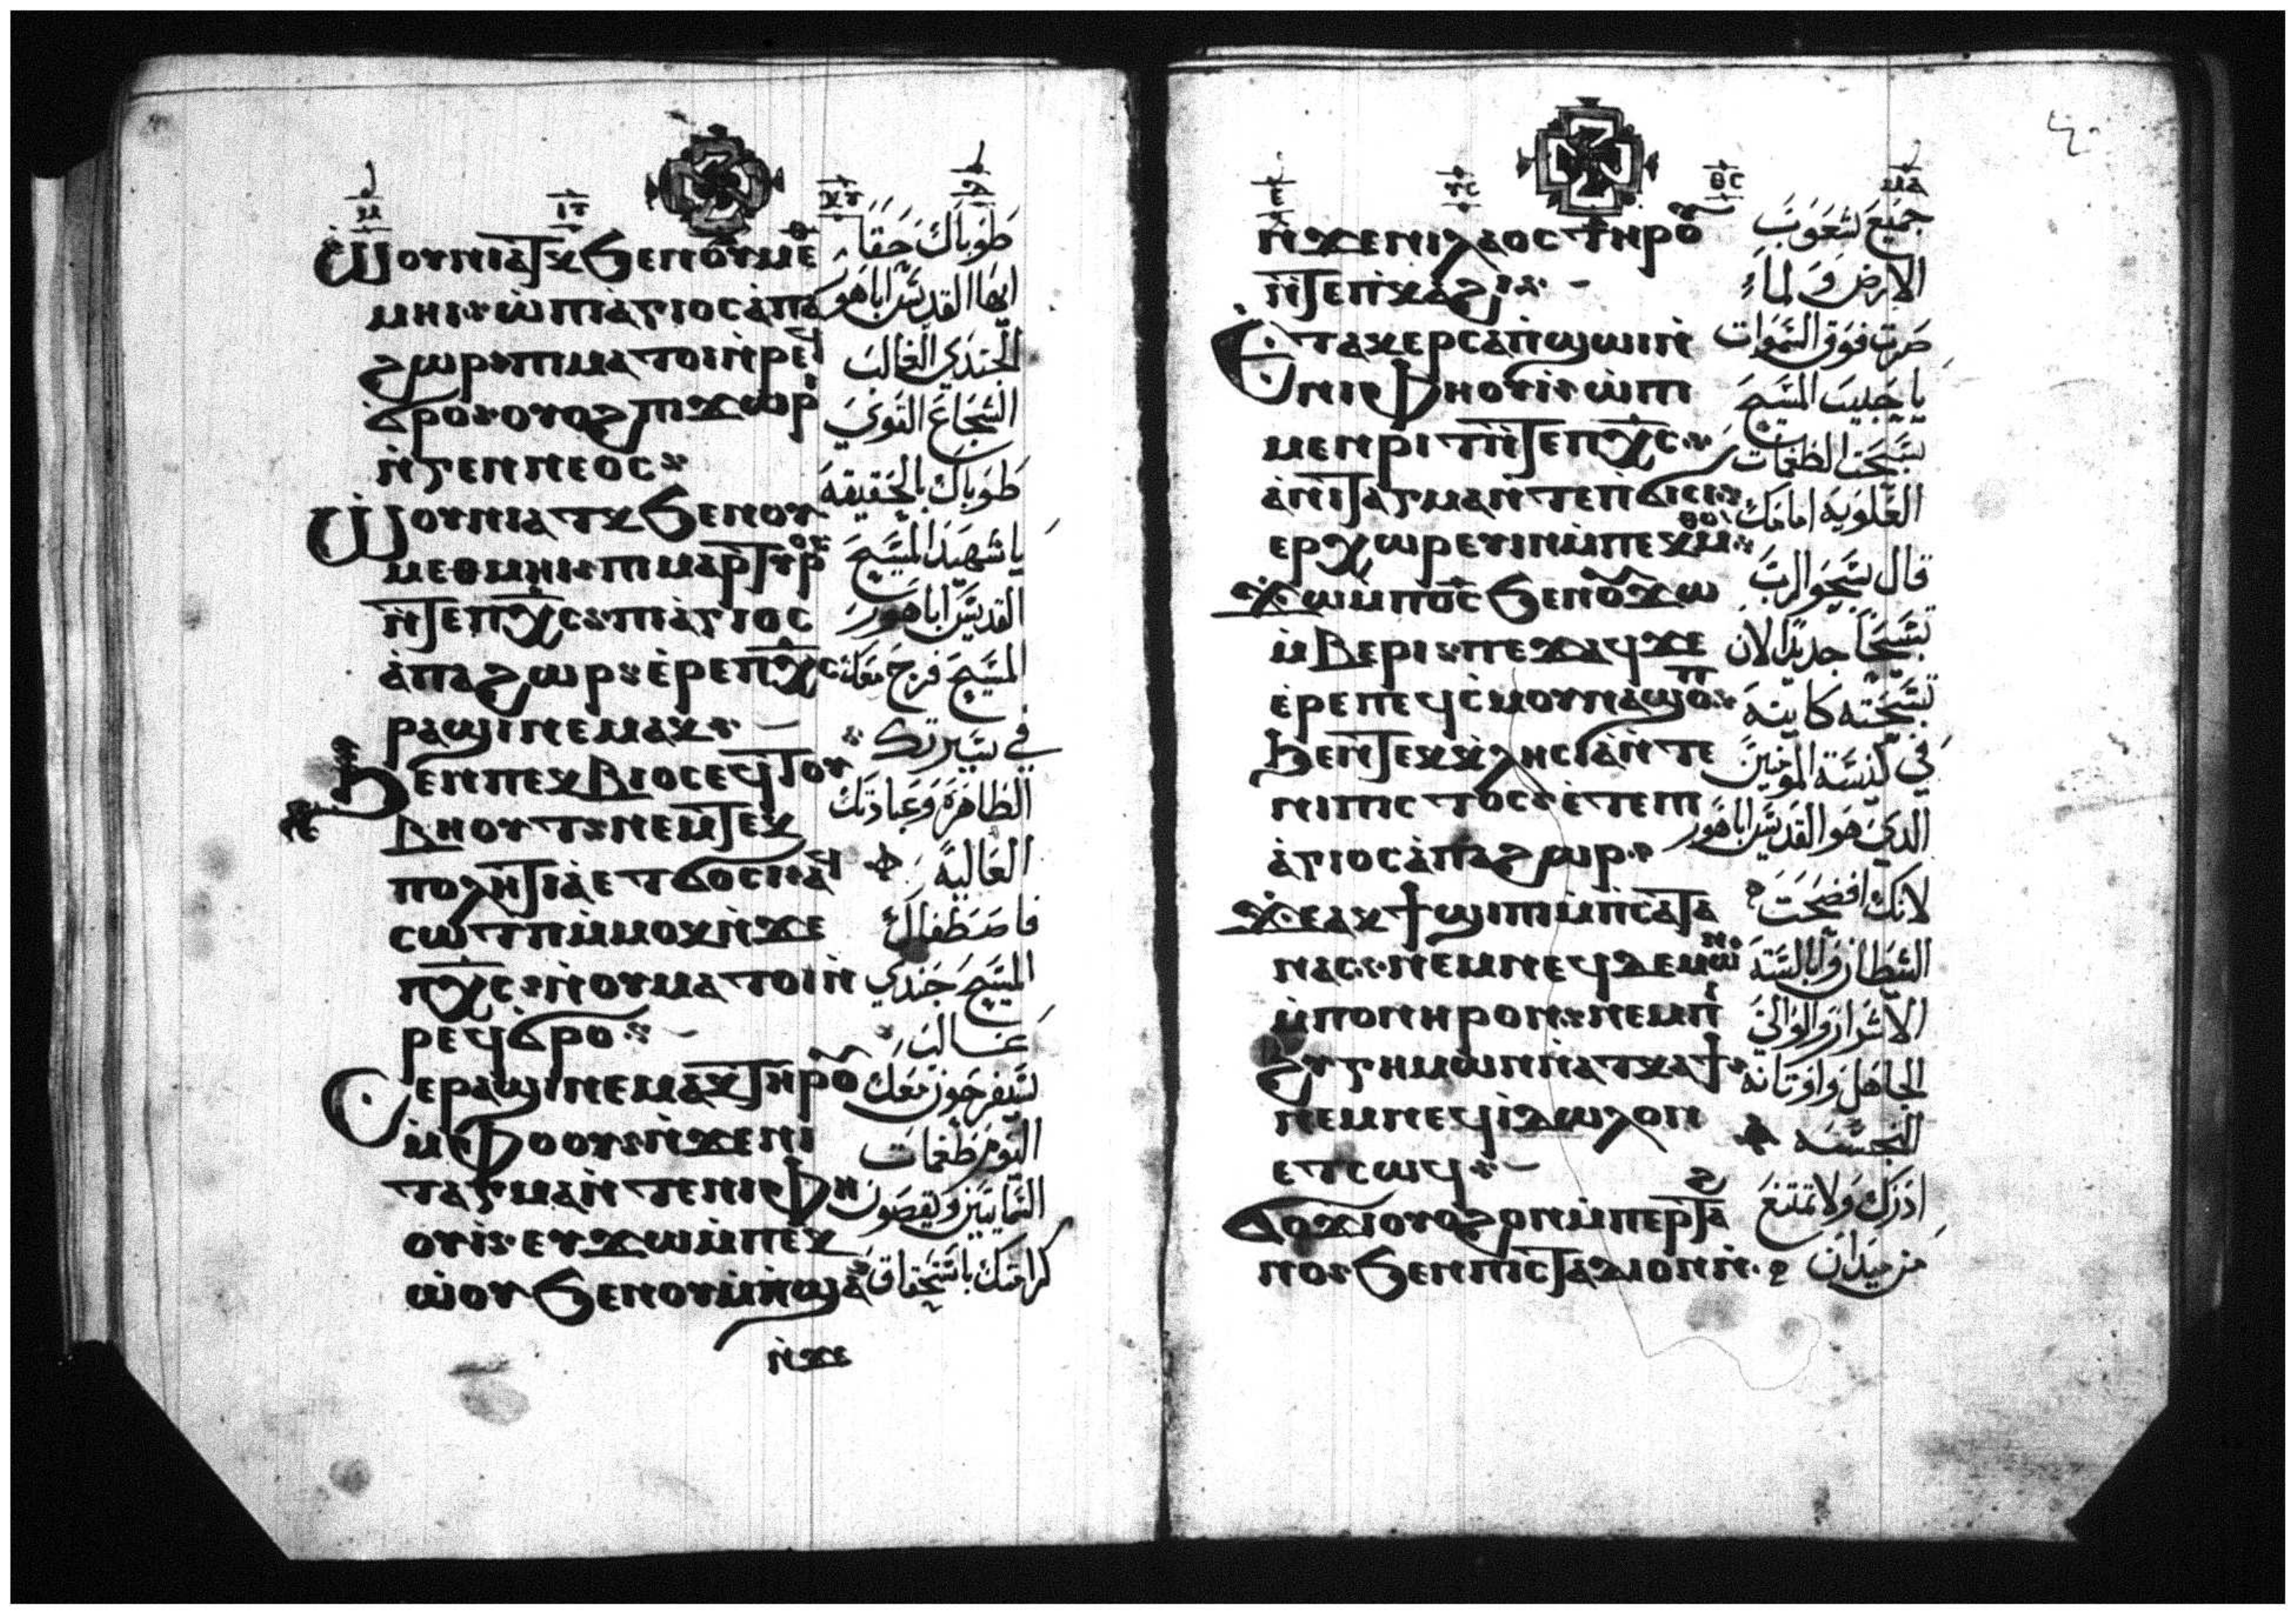 ⲓⲥ ⲭⲥ
Ⲱⲟⲩⲛⲓⲁⲧⲕ ϧⲉⲛⲟⲩⲙⲉⲑ
ⲙⲏⲓ ⲱ ⲡⲓⲁⲅⲓⲟⲥ ⲁⲡⲁ
ϩⲱⲣ ⲡⲓⲙⲁⲧⲟⲓ ⲛⲣⲉϥ
ϭⲣⲟ ⲟⲩⲟϩ ⲡⲓϫⲱⲣⲓ
ⲛⲅⲉⲛⲛⲉⲟⲥ
Ⲱⲟⲩⲛⲓⲁⲧⲕ ϧⲉⲛⲟⲩ
ⲙⲉⲑⲙⲏⲓ ⲡⲓⲙⲁⲣⲧⲩⲣⲟⲥ
ⲛⲧⲉⲡⲭⲥ ⲡⲓⲁⲅⲓⲟⲥ
ⲁⲡⲁ ϩⲱⲣ ⲉⲣⲉⲡⲭⲥ
ⲣⲁϣⲓ ⲛⲉⲙⲁⲕ
Ϧⲉⲛⲡⲉⲕⲃⲓⲟⲥ ⲉϥⲧⲟⲩ
ⲃⲏⲟⲩⲧ ⲛⲉⲙⲧⲉⲕ
ⲡⲟⲗⲏⲧⲓⲁ ⲉⲧϭⲟⲥⲓ ⲁϥ
ⲥⲱⲧⲡ ⲙⲙⲟⲕ ⲛϫⲉ
ⲡⲭⲥ ⲛⲟⲩⲙⲁⲧⲟⲓ ⲛ
ⲣⲉϥϭⲣⲟ
Ⲥⲉⲣⲁϣⲓ ⲛⲉⲙⲁⲕ ⲧⲏⲣⲟⲩ
ⲙⲫⲟⲟⲩ ⲛϫⲉⲛⲓ
ⲧⲁⲅⲙⲁ ⲛⲧⲉⲛⲓⲫⲏ
ⲟⲩⲓ ⲉⲩϫⲱ ⲙⲡⲉⲕ
ⲱⲟⲩ ϧⲉⲛⲟⲩⲙⲡϣⲁ
ⲛϫⲉ
طوباك حقا
ايها القديس اباهور
الجندي الغالب
الشجاع القوي
طوباك بالحقيقه
يا شهيد المسيح
القديس اباهور
المسيح فرح معك
في سيرتك
الظاهرة وعبادتك
العاليه
فاصطفاك
المسيح جندي
غالب
يتفرحون معك
اليوم طغمات
السمايين ويقصون
كرامتك باستحقاق
ⲩⲥ ⲑⲥ
ⲛϫⲉⲛⲓⲗⲁⲟⲥ ⲧⲏⲣⲟⲩ
ⲛⲧⲉⲡⲕⲁϩⲓ
Ⲉⲧⲁⲕⲉⲣⲥⲁⲡϣⲱⲓ ⲛ
ⲛⲓⲫⲏⲟⲩⲓ ⲱ ⲡⲓ
ⲙⲉⲛⲣⲓⲧ ⲛⲧⲉⲡⲭⲥ
ⲁⲛⲓⲧⲁⲅⲙⲁ ⲛⲧⲉⲡϭⲓⲥⲓ
ⲉⲣⲭⲱⲣⲉⲩⲓⲛ ⲙⲡⲉⲕⲙⲑⲟ
Ϫⲱ ⲙⲡⲟⲥ ϧⲉⲛⲟⲩϫⲱ
ⲙⲃⲉⲣⲓ ⲡⲉϫⲁϥ ϫⲉ
ⲉⲣⲉⲡⲉϥⲥⲙⲟⲩ ⲛⲁϣⲱⲡⲓ
Ϧⲉⲛⲧⲉⲕⲕⲗⲏⲥⲓⲁ ⲛⲧⲉ
ⲛⲓⲡⲓⲥⲧⲟⲥ ⲉⲧⲉⲡⲓ
ⲁⲅⲓⲟⲥ ⲁⲡⲁ ϩⲱⲣ
Ϫⲉⲁⲕϯϣⲓⲡⲓ ⲙⲡⲥⲁⲧⲁ
ⲛⲁⲥ ⲛⲉⲙⲛⲉϥⲇⲉⲙⲱⲛ
ⲙⲡⲟⲛⲏⲣⲟⲛ ⲛⲉⲙⲡⲓ
ϩⲩⲅⲏⲙⲱⲛ ⲛⲁⲧⲕⲁϯ
ⲛⲉⲙⲛⲉϥⲓⲇⲱⲗⲟⲛ
ⲉⲧⲥⲱϥ
Ϭⲟϫⲓ ⲟⲩⲟϩ ⲟⲛ ⲙⲡⲉⲣⲧⲁϩ
ⲛⲟ ϧⲉⲛⲡⲓⲥⲧⲁⲇⲓⲟⲛ ⲛ
جميع شعوب
الارض والماء
صرت فوق السموات
يا حبيب المسيح
تسبحت الطغمات
العلويه امامك
قال سبحو الرب
تسبيحا جديدا لان
تسبحته كاينه
في كنيسة المومنين
الدي هو القديس اباهور
لانك افضحت
الشيطان وابالسته
الاشرار والوالي
الجاهل واوتانه
النجسه
ادرك ولا تمتنع
من ميدان